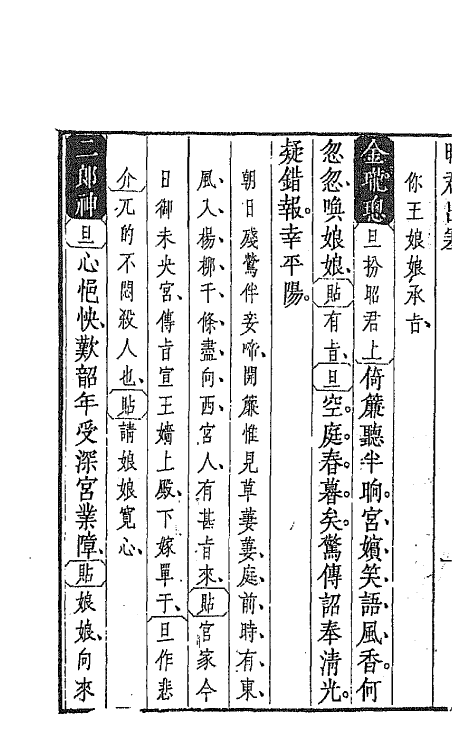 你王娘娘承旨、
金瓏璁 旦扮昭君上 倚簾聽半晌。宮嬪笑語風香。何
忽忽、喚娘娘、貼 有旨、旦 空。庭。春。暮。矣。驚傳詔奉清光。
疑錯報。幸平陽。
朝日殘鶯伴妾啼、開簾惟見草萋萋、庭前、時、有、東、
風、入楊柳千條盡向西宮人、有甚旨來、貼 宮家今
日御未央宮、傳旨宣王嬙上殿、下嫁單于、旦 作悲
介 兀的不悶殺人也、貼 請娘娘寬心、
二郎神 旦 心悒怏、歎韶年受深宮業障、貼 娘娘、向來